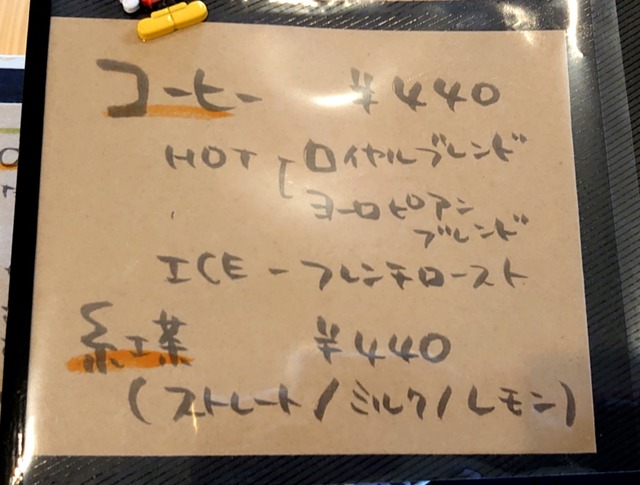 コーヒー ¥440
HOT [ ロイヤルブレンド
ヨーロピアン
ブレンド
ICE - フレンチロースト
紅茶 ¥440
(ストレート/ミルク/レモン)